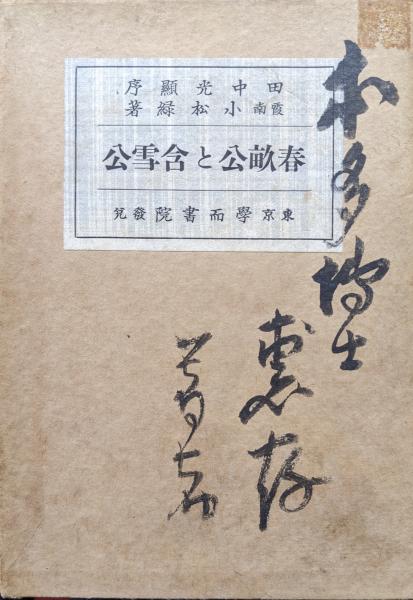 田中光顯序
霞南 小松緑著
春畝公と含雪公
東京 學而書院發兌
本多博士
惠存
著者